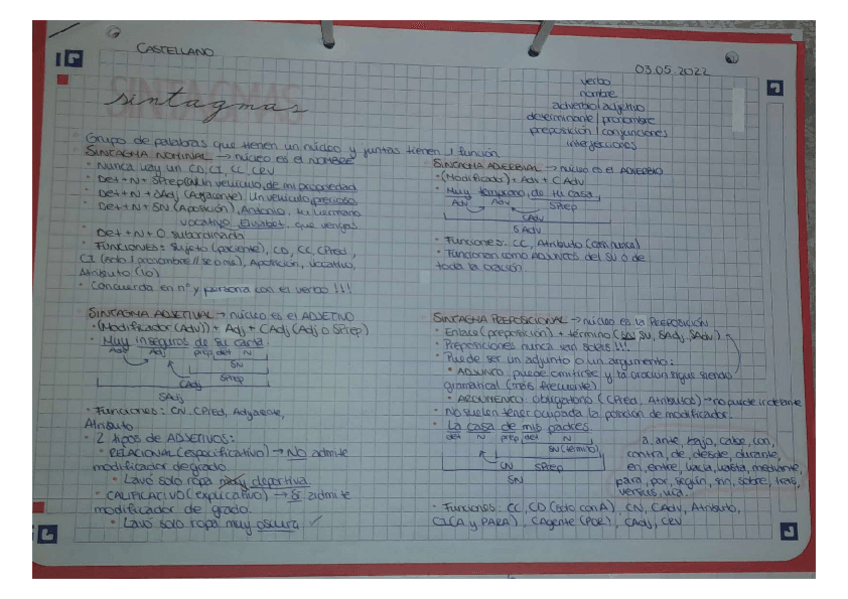 CASTELLANO
03.05.2022
SINTAGMAS
sintagmas
verbo
nombre
adverbio/adjetivo
determinante/pronombre
preposición/conjunciones
interjecciones
Grupo de palabras que tienen un núcleo y juntas tienen 1 función
SINTAGMA NOMINAL → núcleo es el NOMBRE
• Nunca hay un CD, CI, CC, CRV
• Det + N + SPrep(CN) Un vehículo, de mi propiedad
• Det + N + SAdj (Adyacente) Un vehículo, precioso
• Det + N + SN (Aposición), Antonio, tu hermano
vocativo Elisabet, que vengas
• Det + N + O subordinada
• Funciones: Sujeto (paciente), CD, CC, CPred,
CI (solo 1 pronombre // se o me), Aposición, Vocativo,
Atributo (lo)
• Concuerda en nº y persona con el verbo !!!
SINTAGMA ADJETIVAL → núcleo es el ADJETIVO
• (Modificador (Adv)) + Adj + CAdj (Adj o SPrep)
• Muy inseguros de su carta
Adv Adj prep det N
SN
SPrep
CAdj
SAdj
• Funciones: CN, CPred, Adyacente,
Atributo
• 2 tipos de ADJETIVOS:
• RELACIONAL (especificativo) → NO admite
modificador de grado.
• Lavó solo ropa muy deportiva
• CALIFICATIVO (explicativo) → Sí admite
modificador de grado.
• Lavó solo ropa muy oscura ✓
SINTAGMA ADVERBIAL → núcleo es el ADVERBIO
• (Modificado) + Adv + CAdv
• Muy temprano, de tu casa
Adv Adv SPrep
CAdv
SAdv
• Funciones: CC, Atributo
• Funcionan como ADJUNTOS del SV o de
toda la oración.
SINTAGMA PREPOSICIONAL → núcleo es la PREPOSICIÓN
• Enlace (preposición) + término (SN, SV, SAdj, SAdv)
• Preposiciones nunca van solas !!!
• Puede ser un adjunto o un argumento:
• ADJUNTO: puede omitirse y la oración sigue siendo
gramatical (más frecuente)
• ARGUMENTO: obligatorio (CPred, Atributos) → no puede ir delante
• No suelen tener ocupada la posición de modificador.
• La casa de mis padres.
det N prep det N
SN (término)
CN SPrep
SN
a, ante, bajo, cabe, con,
contra, de, desde, durante,
en, entre, hacia, hasta, mediante,
para, por, según, sin, sobre, tras,
versus, vía.
• Funciones: CC, CD (solo con A), CN, CAdv, Atributo,
CI (A y PARA), CAgente (POR), CAdj, CRV